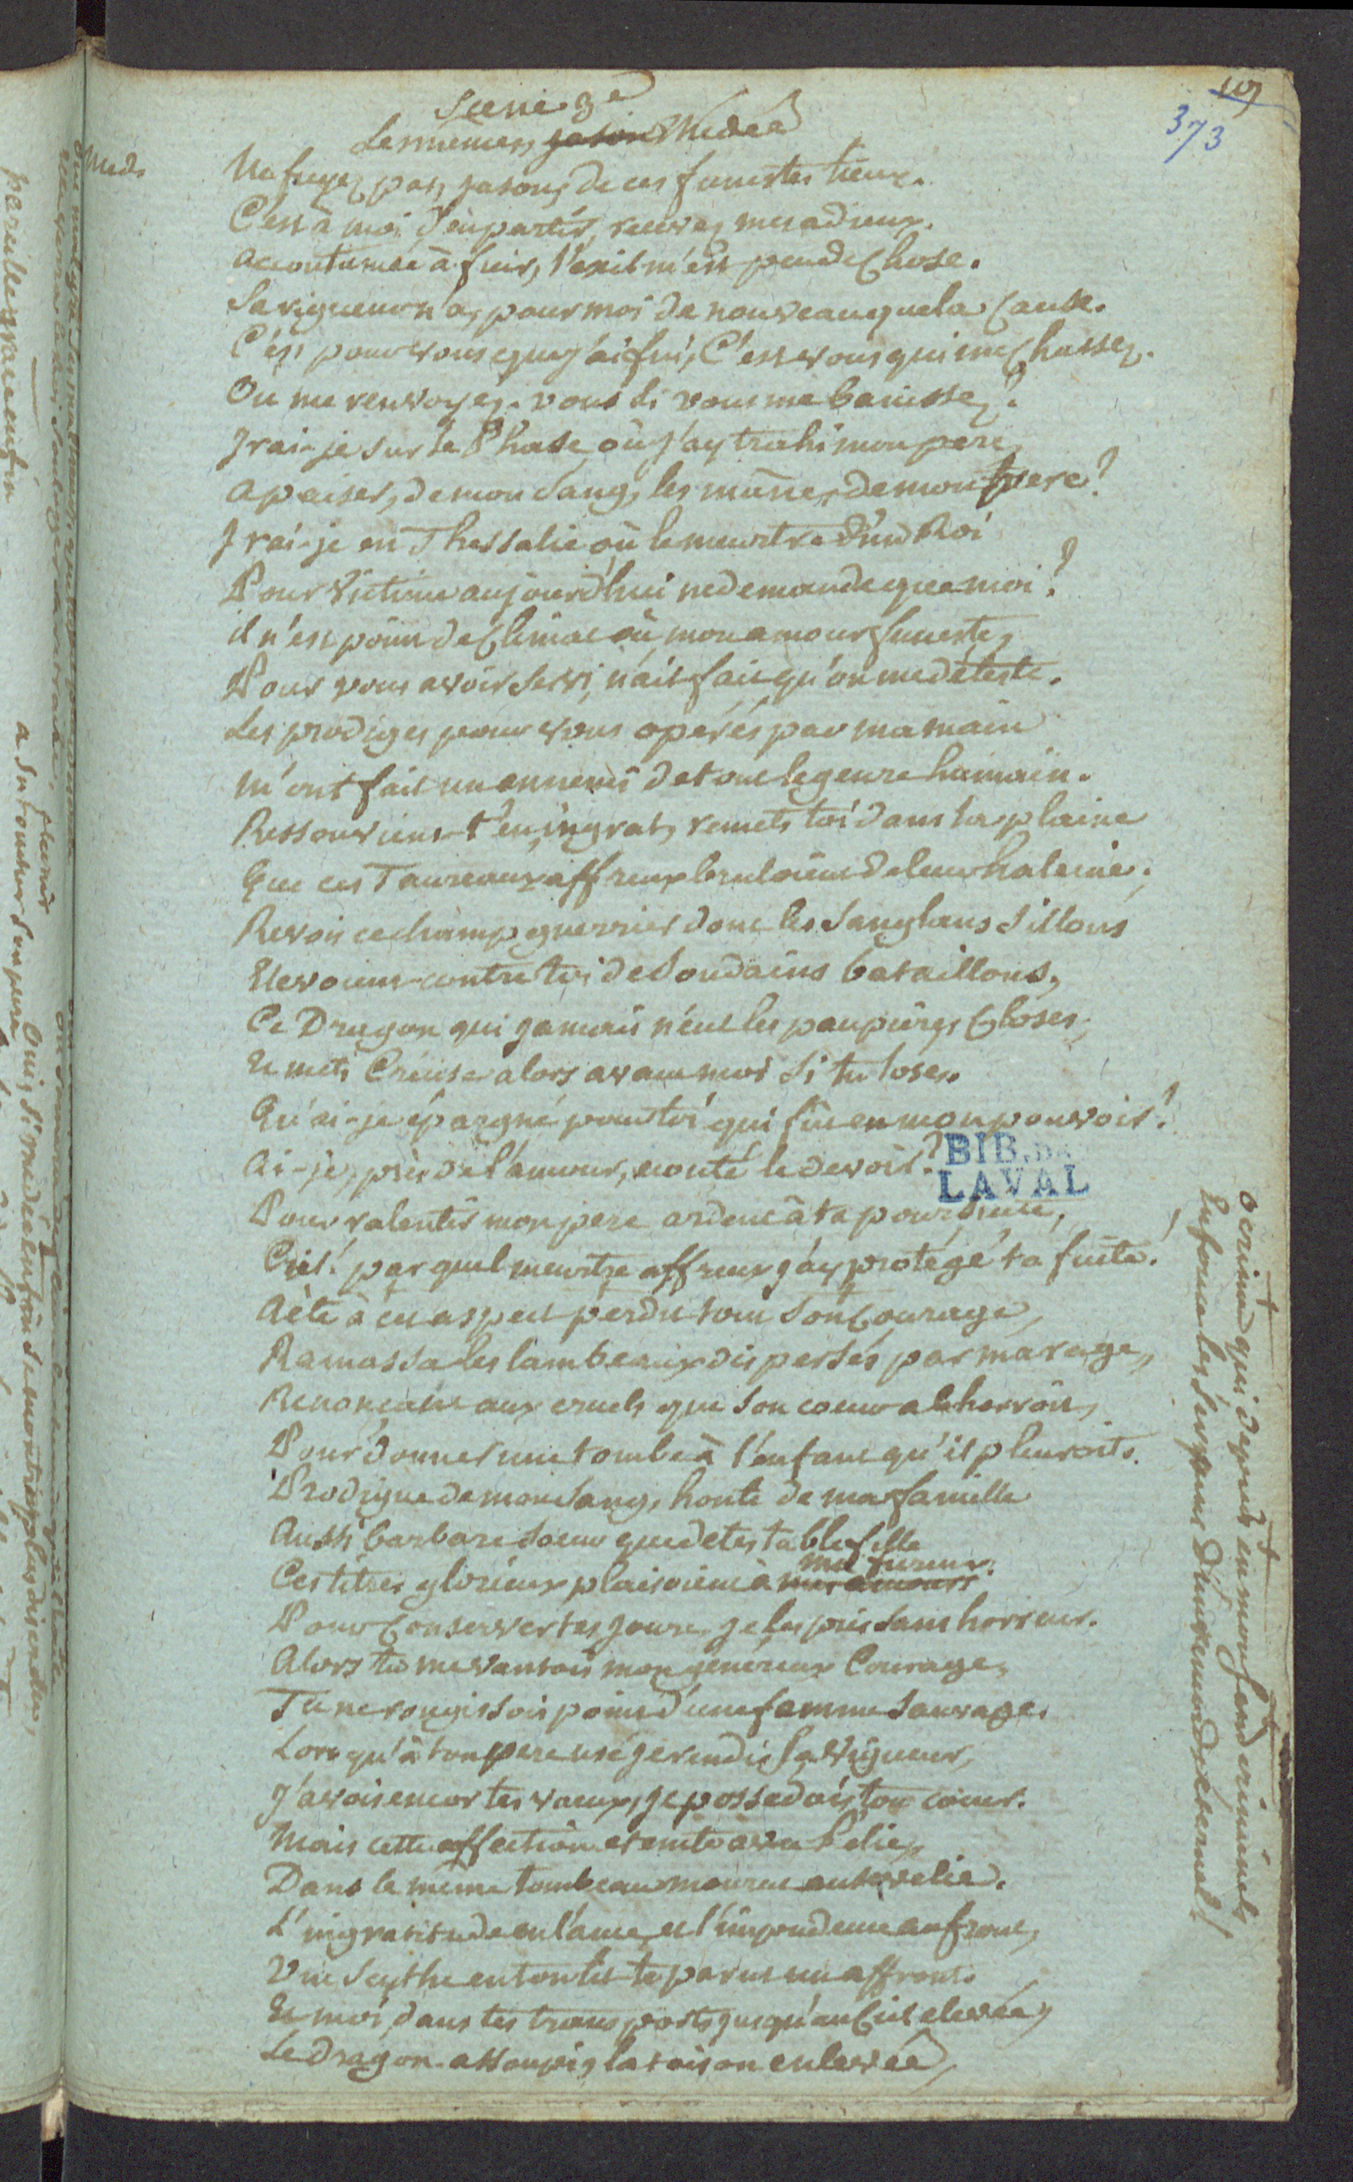 109
373
Scene 3e
Les mêmes, jason Medée
Med.
Ne fuyez pas, jason, de ces funestes lieux.
C'est à moi d'en partir, recevez mes adieux.
accoutumée à fuir, l'exil m'est peu de Chose.
Sa rigueur n'a, pour moi de nouveau que la Cause.
C'est pour vous que j'ai fui, C'est vous qui me Chassez.
Ou me renvoyez-vous si vous me banissez?
Irai-je sur le Phase où j'ay trahi mon pere
apaiser, de mon sang, les mânes de mon frere?
Irai-je en Thessalie où le meurtre d'un Roi
Pour Victime aujourd'hui ne demande que moi?
il n'est point de Climat où mon amour funeste,
Pour vous avoir servi, n'ait fait qu'on me déteste.
Les prodiges pour vous opérés par ma main
m'ont fait un ennemi de tout le genre humain.
Ressouviens-t'en, ingrat, remets toi dans la plaine
Que ces Taureaux affreux bruloient de leur haleine;
Revois ce champ guerrier dont les sanglans sillons
Elevoient contre toi de soudains bataillons,
Ce Dragon qui jamais n'eut les paupières Closes;
Et mets Créuse alors avant moi si tu l'oses.
Qu'ai-je épargné pour toi qui fut en mon pouvoir?
Ai-je, près de l'amour, écouté le devoir?
BIB. DE
LAVAL
Pour ralentir mon pere ardent à ta poursuite,
Ciel! par quel meurtre affreux j'ay protégé ta fuite!
Aëte à cet aspect perdit tout son Courage,
Ramassa les lambeaux dispersés par ma rage,
Renonçant aux cruels que son coeur abhorroit,
Pour donner une tombe à l'enfant qu'il pleuroit.
Prodigue de mon sang, honte de ma famille
Aussi barbare soeur que detestable fille
Ces titres glorieux plaisoient à mes amours ma fureur.
Pour Conserver tes jours, je les pris sans horreur.
Alors tu me vantois mon genereux Courage,
Tu ne rougissois point d'une femme sauvage.
Lorsqu'à ton pere usé je rendis la vigueur,
J'avois encor tes voeux, je possedois ton coeur.
Mais cette affection eteinte avec Pélie,
Dans le même tombeau mourut ensevelie.
L'ingratitude en l'ame et l'impudence au front,
Une Scythe en ton lit te parut un affront.
Et moi, dans tes transports jusqu'au Ciel elevée,
Le dragon assoupi, la toison enlevée,
O crime qui depuis en mon fond criminel,
Enfonce les serpens d'un remords eternel!